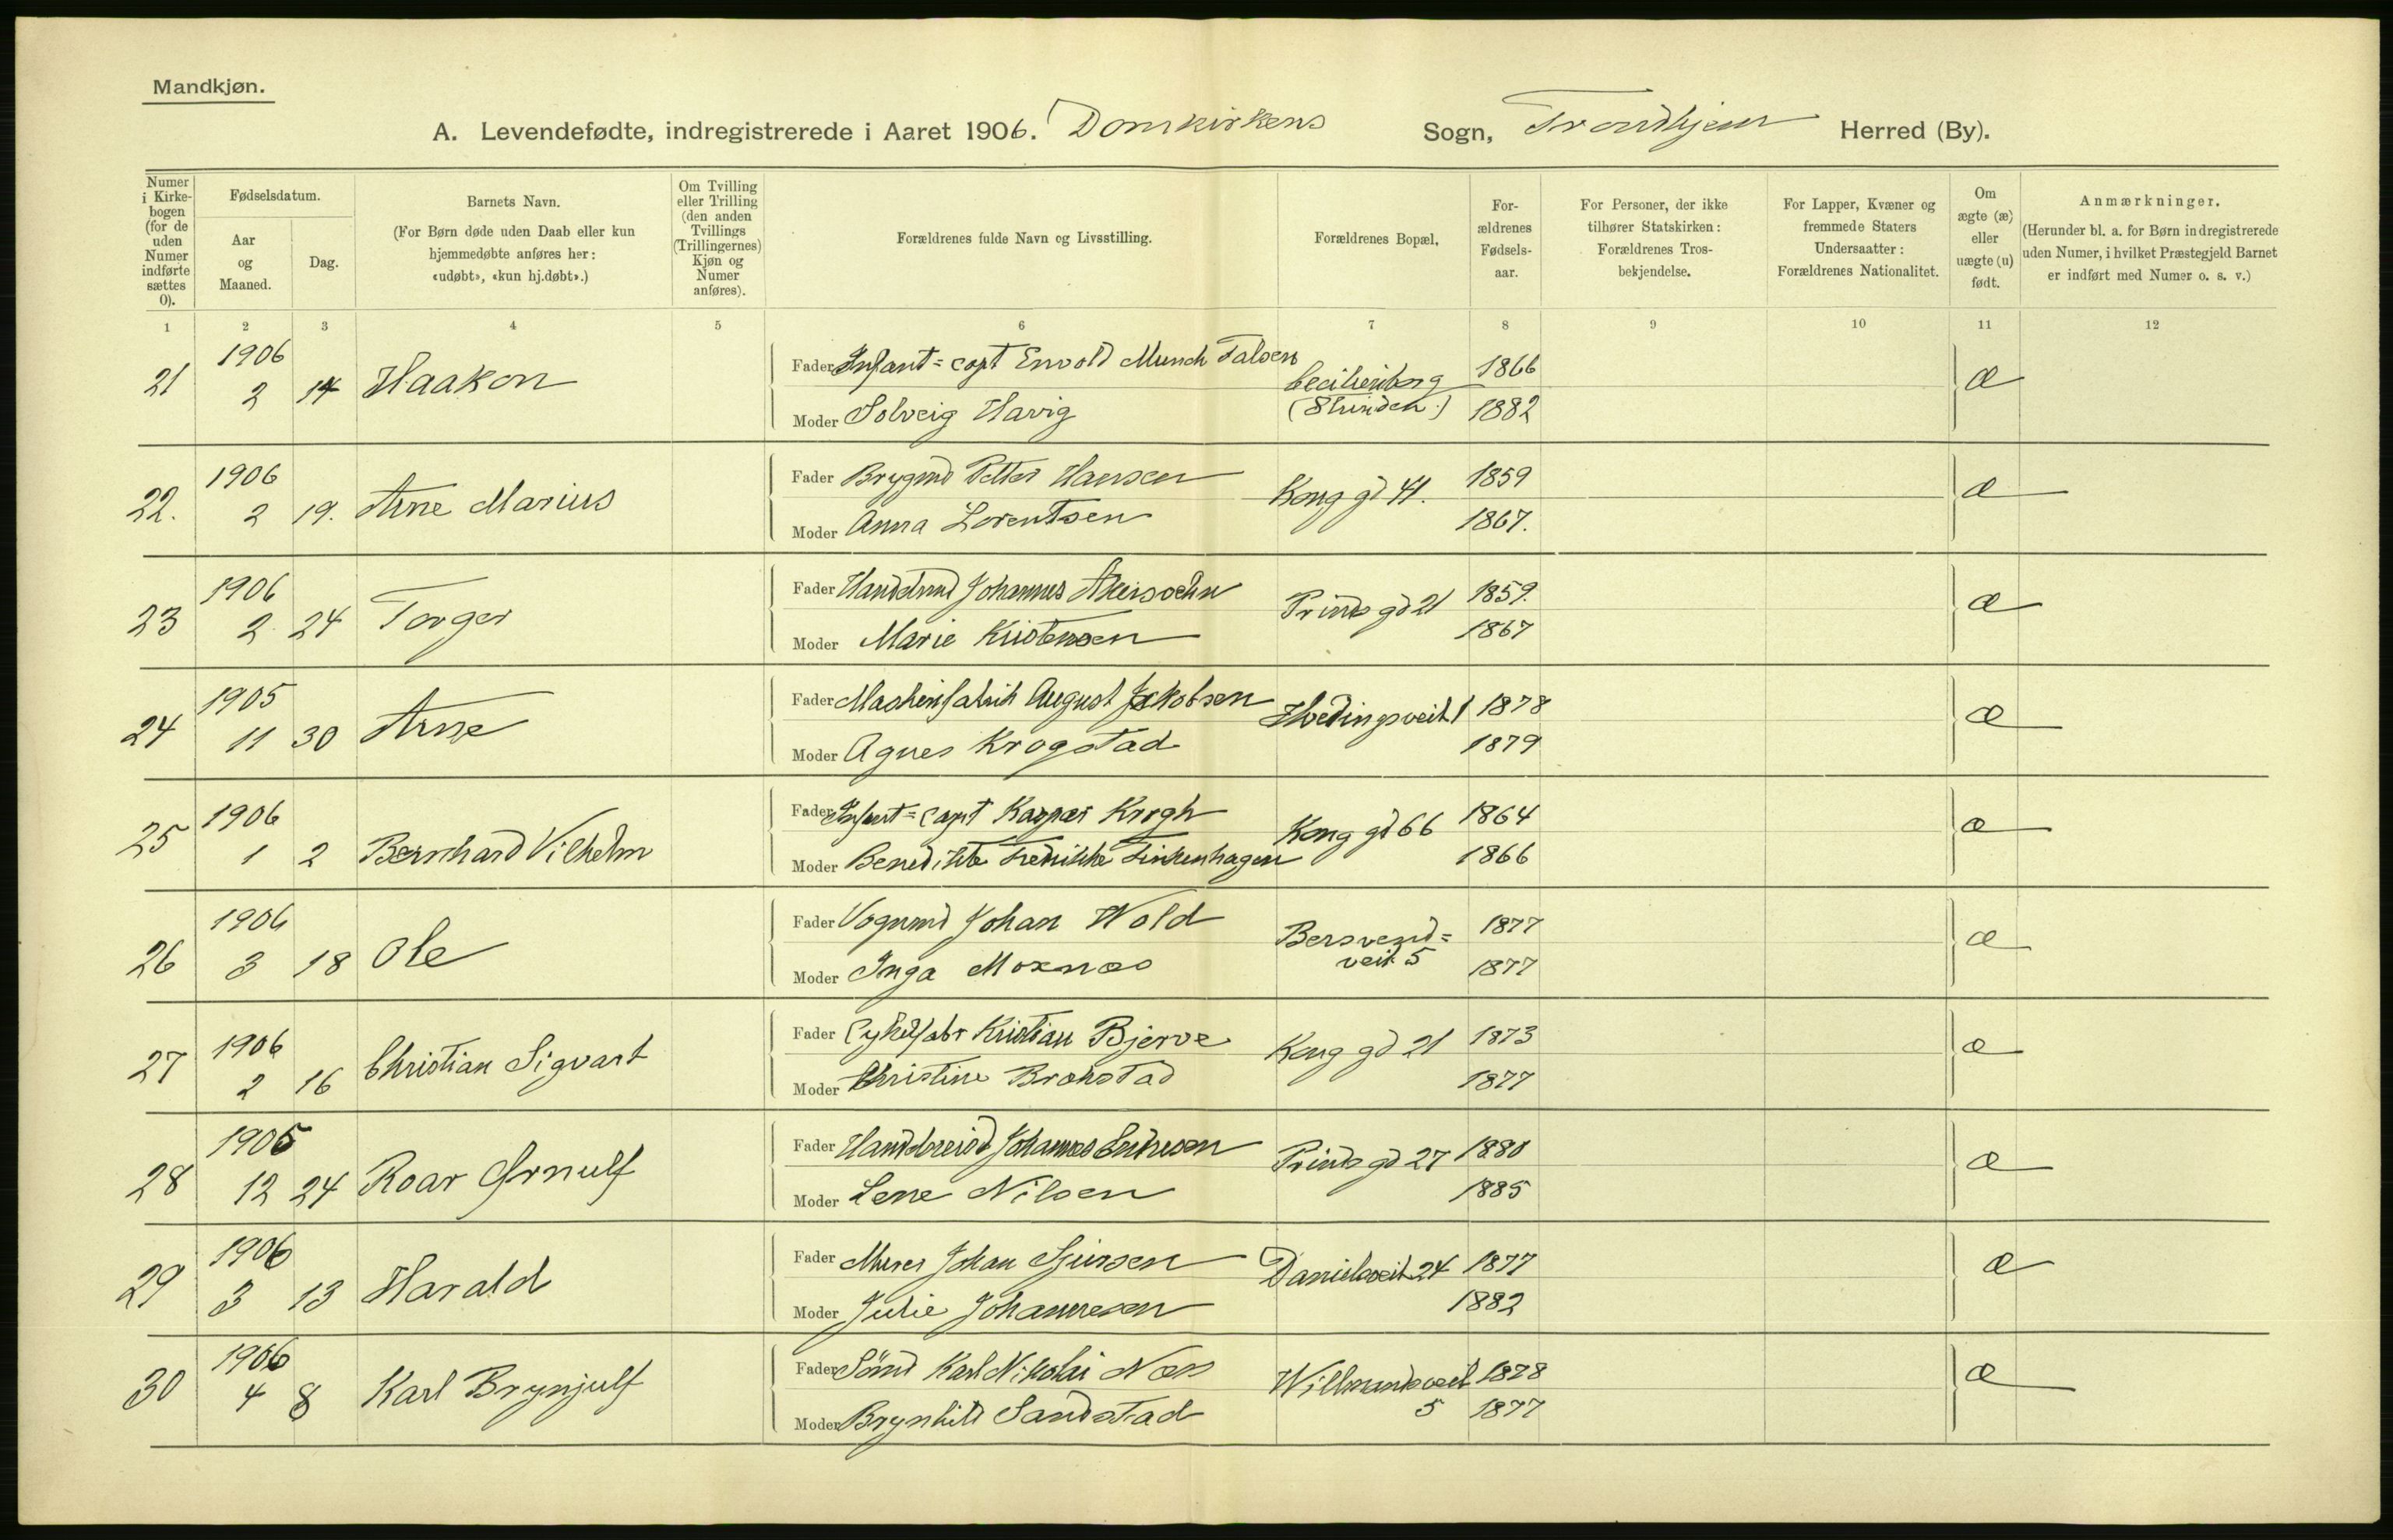 Mandkjøn.
A. Levendefødte, indregistrerede i Aaret 1906. Domkirkens Sogn, Trondhjem Herred (By).
Numer i Kirke-bogen (for de uden Numer indførte sættes 0).
Fødselsdatum.
Aar og Maaned.
Dag.
Barnets Navn.
(For Børn døde uden Daab eller kun hjemmedøbte anføres her: «udøbt», «kun hj.døbt».)
Om Tvilling eller Trilling (den anden Tvillings (Trillingernes) Kjøn og Numer anføres).
Forældrenes fulde Navn og Livsstilling.
Forældrenes Bopæl.
For-ældrenes Fødsels-aar.
For Personer, der ikke tilhører Statskirken: Forældrenes Tros-bekjendelse.
For Lapper, Kvæner og fremmede Staters Undersaatter: Forældrenes Nationalitet.
Om ægte (æ) eller uægte (u) født.
Anmærkninger.
(Herunder bl. a. for Børn indregistrerede uden Numer, i hvilket Præstegjeld Barnet er indført med Numer o. s. v.)
1 2 3 4 5 6 7 8 9 10 11 12
1906
21 2 14 Haakon
Fader Infant=capt Envold Munch Falsen 1866 æ
Cecilienborg
(Strinden.)
Moder Solveig Havig 1882
1906
22. 2 19. Arne Marius
Fader Brygmd Petter Hansen Kong gd 41. 1859 æ
Moder Anna Lorentsen 1867.
1906
23 2 24 Torger
Fader Johannes Prinds gd 21 1859. æ
Moder Marie Kristensen 1867
1905
24 11 30 Arne
Fader August Jakobsen 1 1878 æ
Moder Agnes Krogstad 1879
1906
25 1 2 Bernhard Vilhelm
Fader Infant=capt Kaspar Krogh Kong gd 66 1864 æ
Moder Benedikte Fredrikke Finkenhagen 1866
1906
26 3 18 Ole
Fader Vognmd Johan Wold Bersvend= 1877 æ
veit 5
Moder Inga Moxnæs 1877
1906
27 2 16 Christian Sigvart
Fader Cykelfabr Kristian Bjerve Kong gd 21 1873 æ
Moder Christine Brækstad 1877
1905
28 12 24 Roar Ørnulf
Fader Johannes Prinds gd 27 1880 æ
Moder Lene Nilsen 1885
1906
29 3 13 Harald
Fader Murer Johan Danielsveit 24 1877 æ
Moder Julie Johannesen 1882
1906
30 4 8 Karl Brynjulf
Fader Karl Nikolai Næss Willmandsveit 1878 æ
5
Moder Brynhild Sandstad 1877